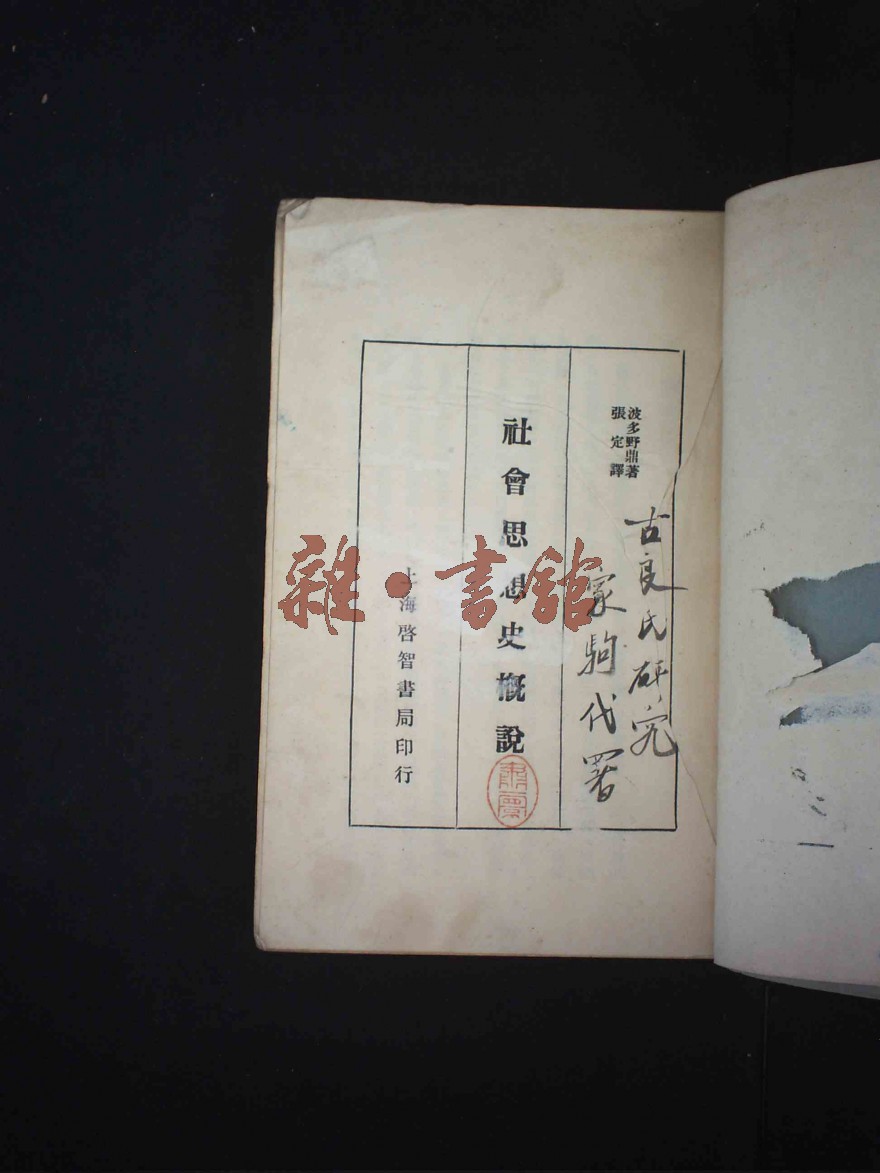 波多野鼎著
張定譯
古良氏研究
家駒代署
社會思想史概說
上海啓智書局印行
雜·書館